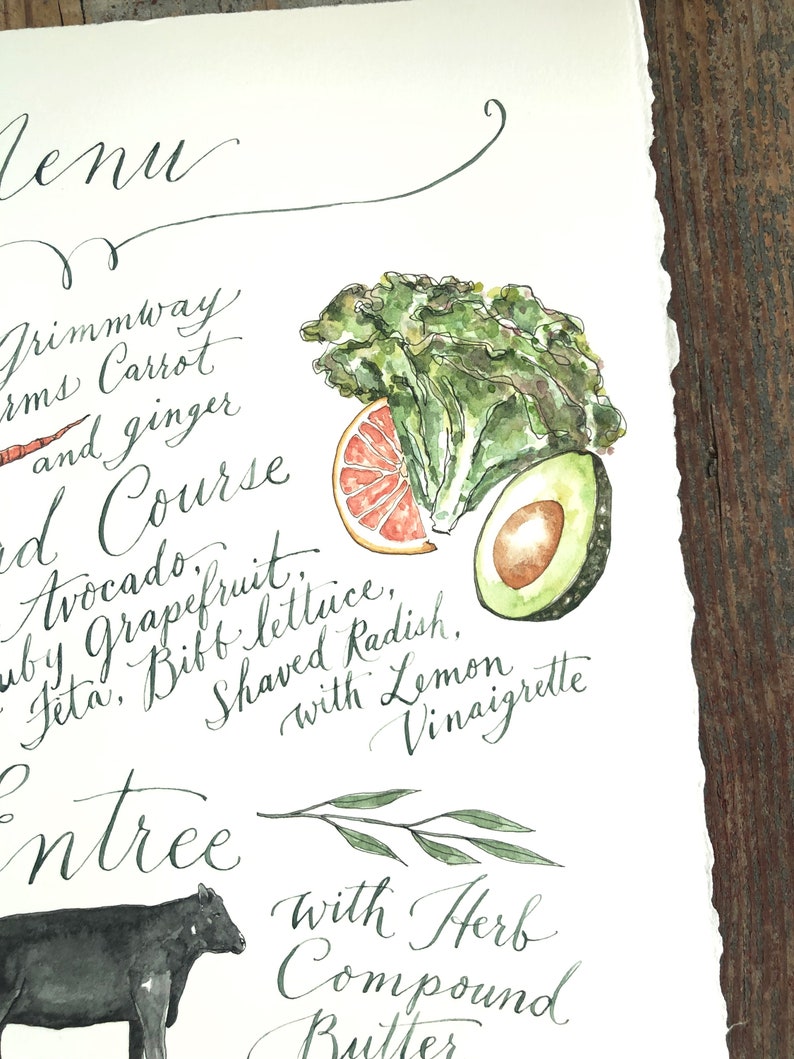 Menu
Grimmway
Farms Carrot
and ginger
Course
Avocado,
Ruby Grapefruit,
Feta, Bibb lettuce,
Shaved Radish,
with Lemon
Vinaigrette
Entree
with Herb
Compound
Butter